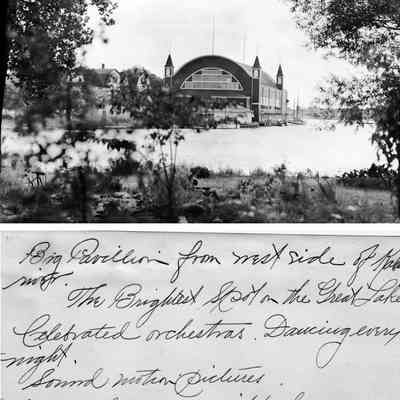 Big Pavillion from west side of
river.
The Brightest Spot on the Great Lake
Celebrated orchestras. Dancing every
night.
Sound motion pictures.